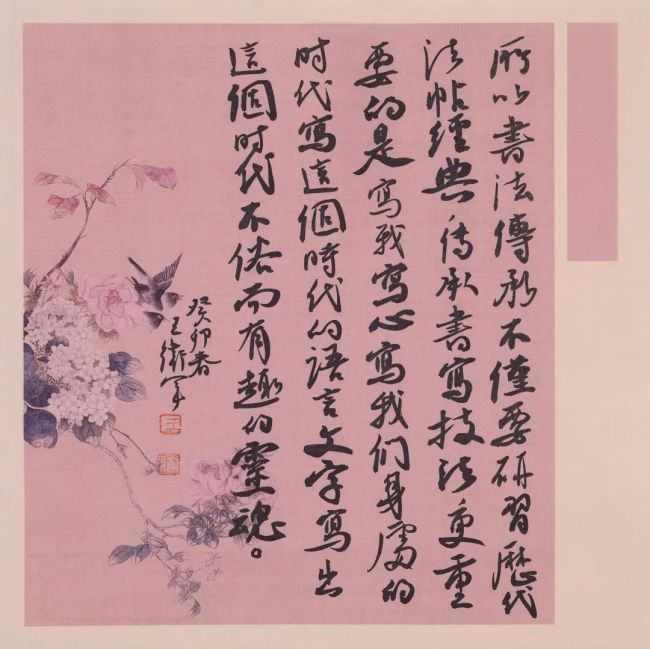 所以書法傳承不僅要研習歷代
法帖經典传承書寫技法更重
要的是寫我寫心寫我们身處的
时代寫這個時代的語言文字寫出
這個时代不俗而有趣的靈魂。
癸卯春
王衛军